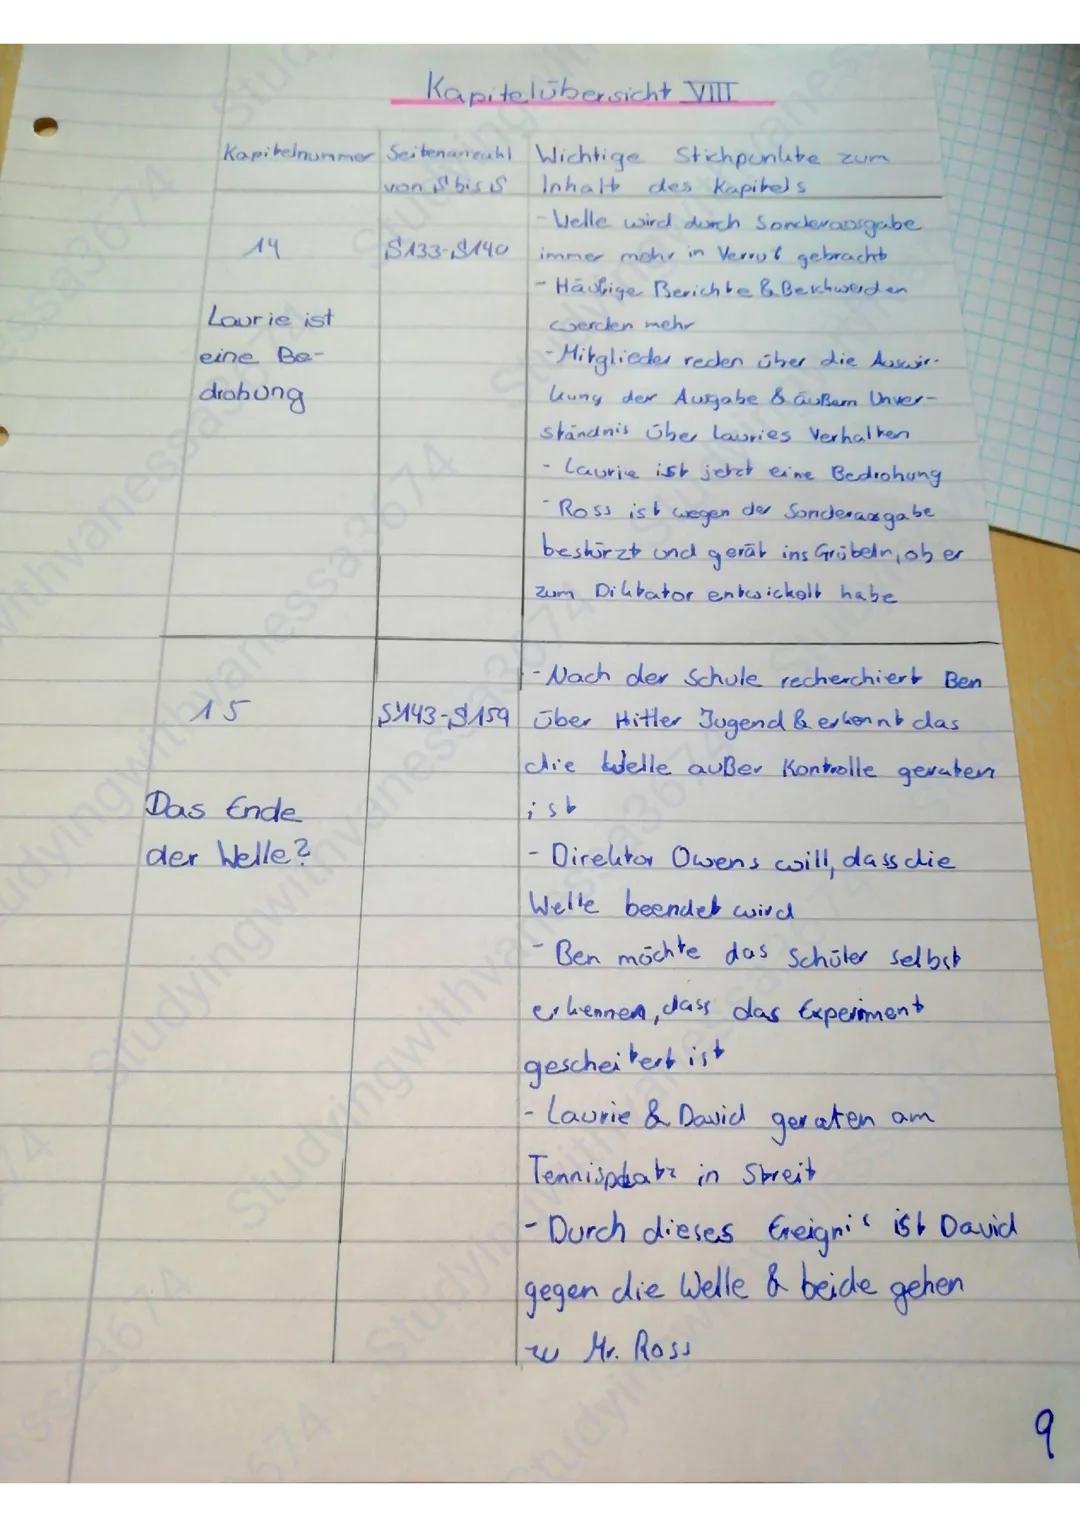 Kapitelübersicht VIII
Kapitelnummer
Seitenanzahl
von S bis S
Wichtige Stichpunkte zum
Inhalt des Kapitels
14
Laurie ist
eine Be-
drohung
S133-S140
- Welle wird durch Sonderausgabe
immer mehr in Verruf gebracht
- Häufige Berichte & Beschwerden
werden mehr
- Mitglieder reden über die Auswir-
kung der Ausgabe & äußern Unver-
ständnis über Lauries Verhalten
- Laurie ist jetzt eine Bedrohung
- Ross ist wegen der Sonderausgabe
bestürzt und gerät ins Grübeln, ob er
zum Diktator entwickelt habe
15
Das Ende
der Welle?
S143-S159
- Nach der Schule recherchiert Ben
über Hitler Jugend & erkennt das
die Welle außer Kontrolle geraten
ist
- Direktor Owens will, dass die
Welle beendet wird
- Ben möchte das Schüler selbst
erkennen, dass das Experiment
gescheitert ist
- Laurie & David geraten am
Tennisplatz in Streit
- Durch dieses Ereignis ist David
gegen die Welle & beide gehen
zu Mr. Ross
9
Studyingwithvanessa3674